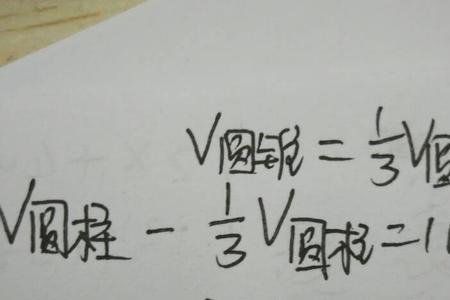 V圆锥 = 1/3 V圆
V圆柱 - 1/3 V圆柱 = 1